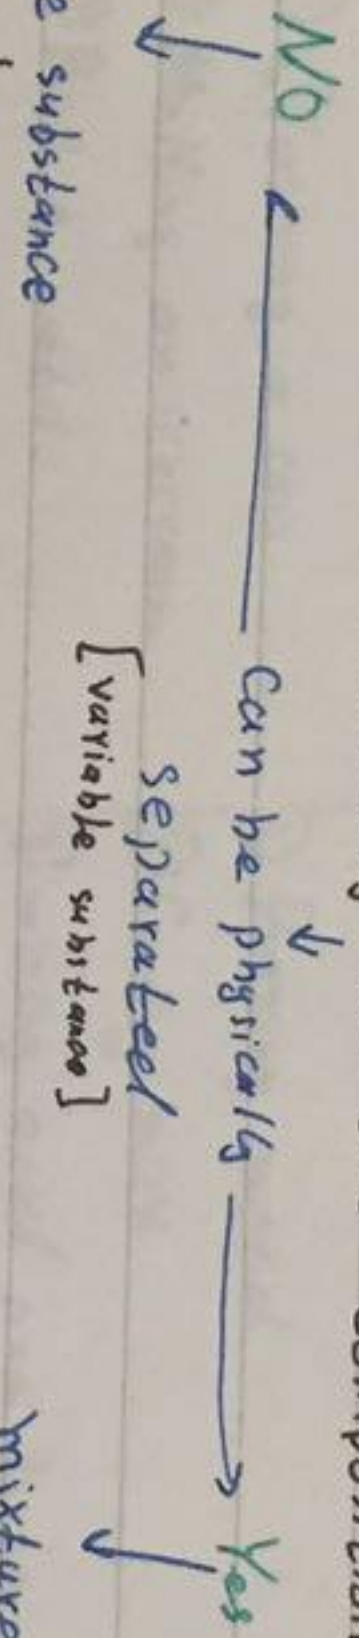 No ← can be physically → Yes
separated
[variable substance]
e substance
mixture